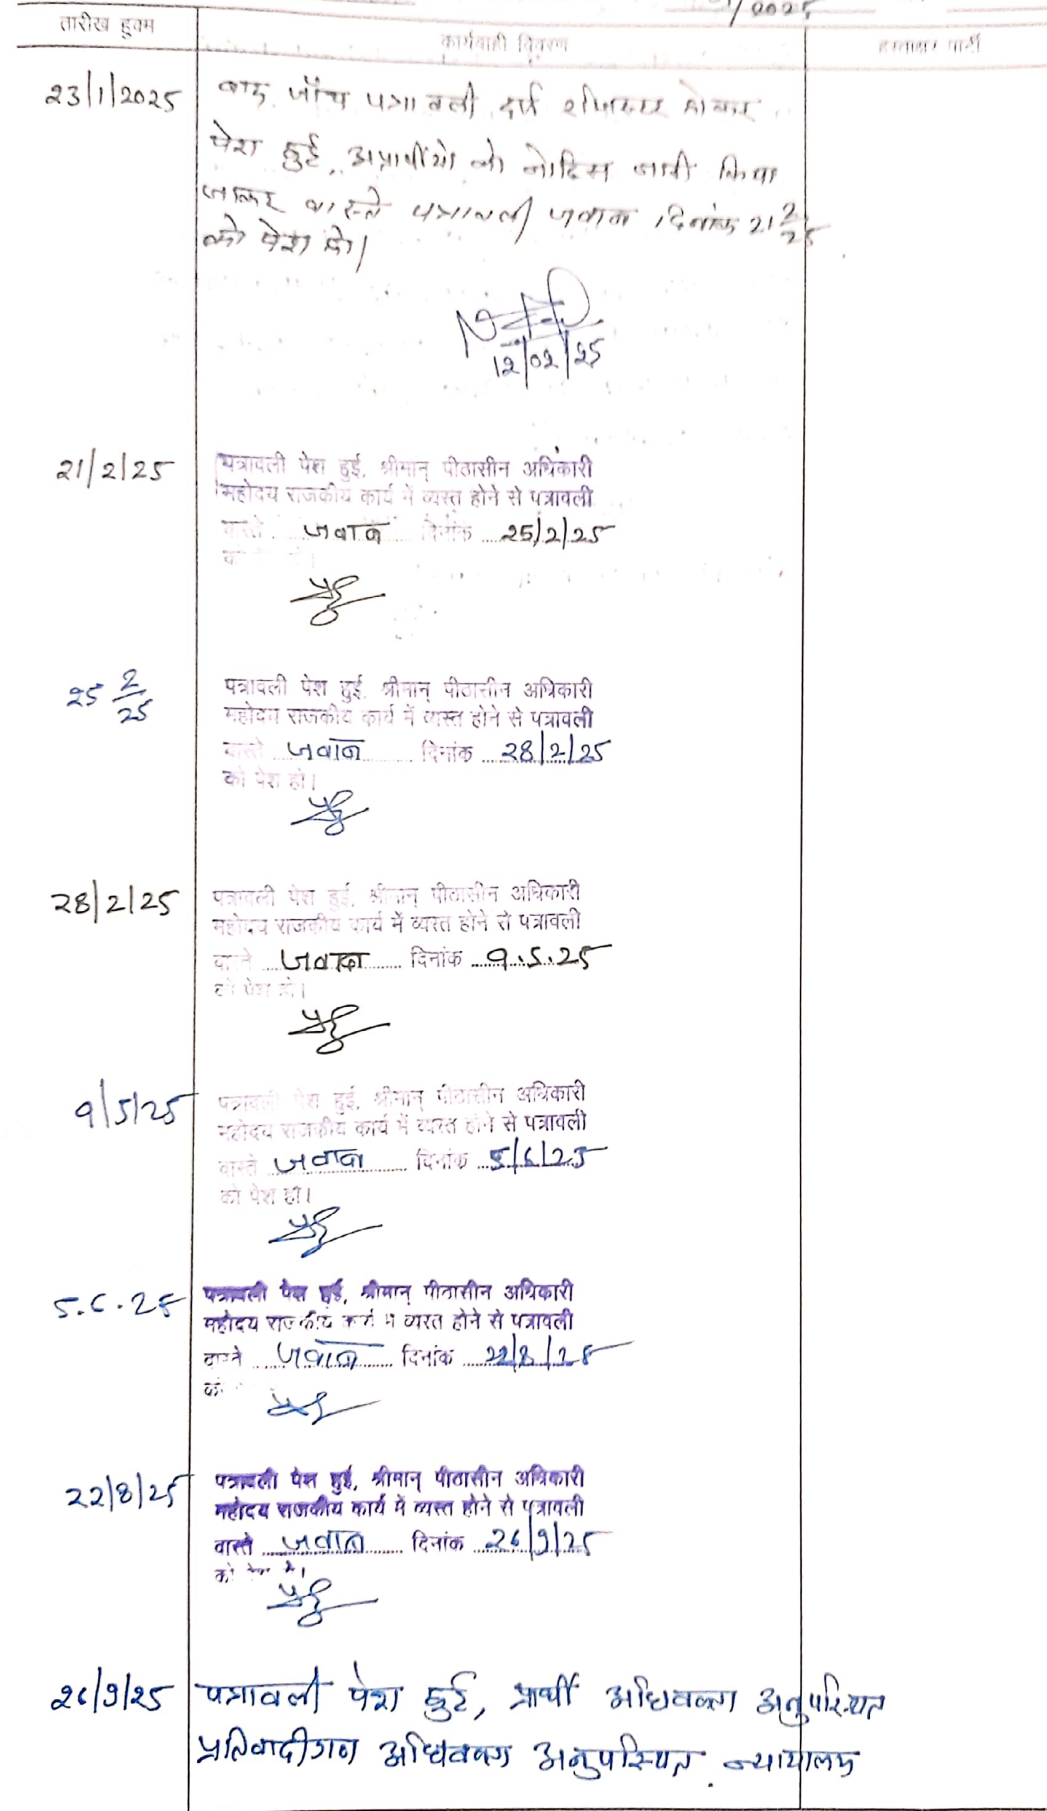 /2025
तारीख हुक्म
कार्यवाही विवरण
हस्ताक्षर पार्टी
23/1/2025
बाद जाँच पत्रावली दर्ज रजिस्टर होकर
पेश हुई, अप्रार्थीयो को नोटिस जारी किया
जाकर वास्ते पत्रावली जवाब दिनांक 21 2/25
को पेश हो।
12/02/25
21/2/25
पत्रावली पेश हुई, श्रीमान् पीठासीन अधिकारी
महोदय राजकीय कार्य में व्यस्त होने से पत्रावली
वास्ते जवाब दिनांक 25/2/25
25 2/25
पत्रावली पेश हुई, श्रीमान् पीठासीन अधिकारी
महोदय राजकीय कार्य में व्यस्त होने से पत्रावली
वास्ते जवाब दिनांक 28/2/25
को पेश हो।
28/2/25
पत्रावली पेश हुई, श्रीमान् पीठासीन अधिकारी
महोदय राजकीय कार्य में व्यस्त होने से पत्रावली
वास्ते जवाब दिनांक 9.5.25
को पेश हो।
9/5/25
पत्रावली पेश हुई, श्रीमान् पीठासीन अधिकारी
महोदय राजकीय कार्य में व्यस्त होने से पत्रावली
वास्ते जवाब दिनांक 5/6/25
को पेश हो।
5.6.25
पत्रावली पेश हुई, श्रीमान् पीठासीन अधिकारी
महोदय राजकीय कार्य में व्यस्त होने से पत्रावली
वास्ते जवाब दिनांक 22/8/25
को
22/8/25
पत्रावली पेश हुई, श्रीमान् पीठासीन अधिकारी
महोदय राजकीय कार्य में व्यस्त होने से पत्रावली
वास्ते जवाब दिनांक 26/9/25
को पेश हो।
26/9/25
पत्रावली पेश हुई, प्रार्थी अधिवक्ता अनुपस्थित
प्रतिवादीगण अधिवक्ता अनुपस्थित. न्यायालय